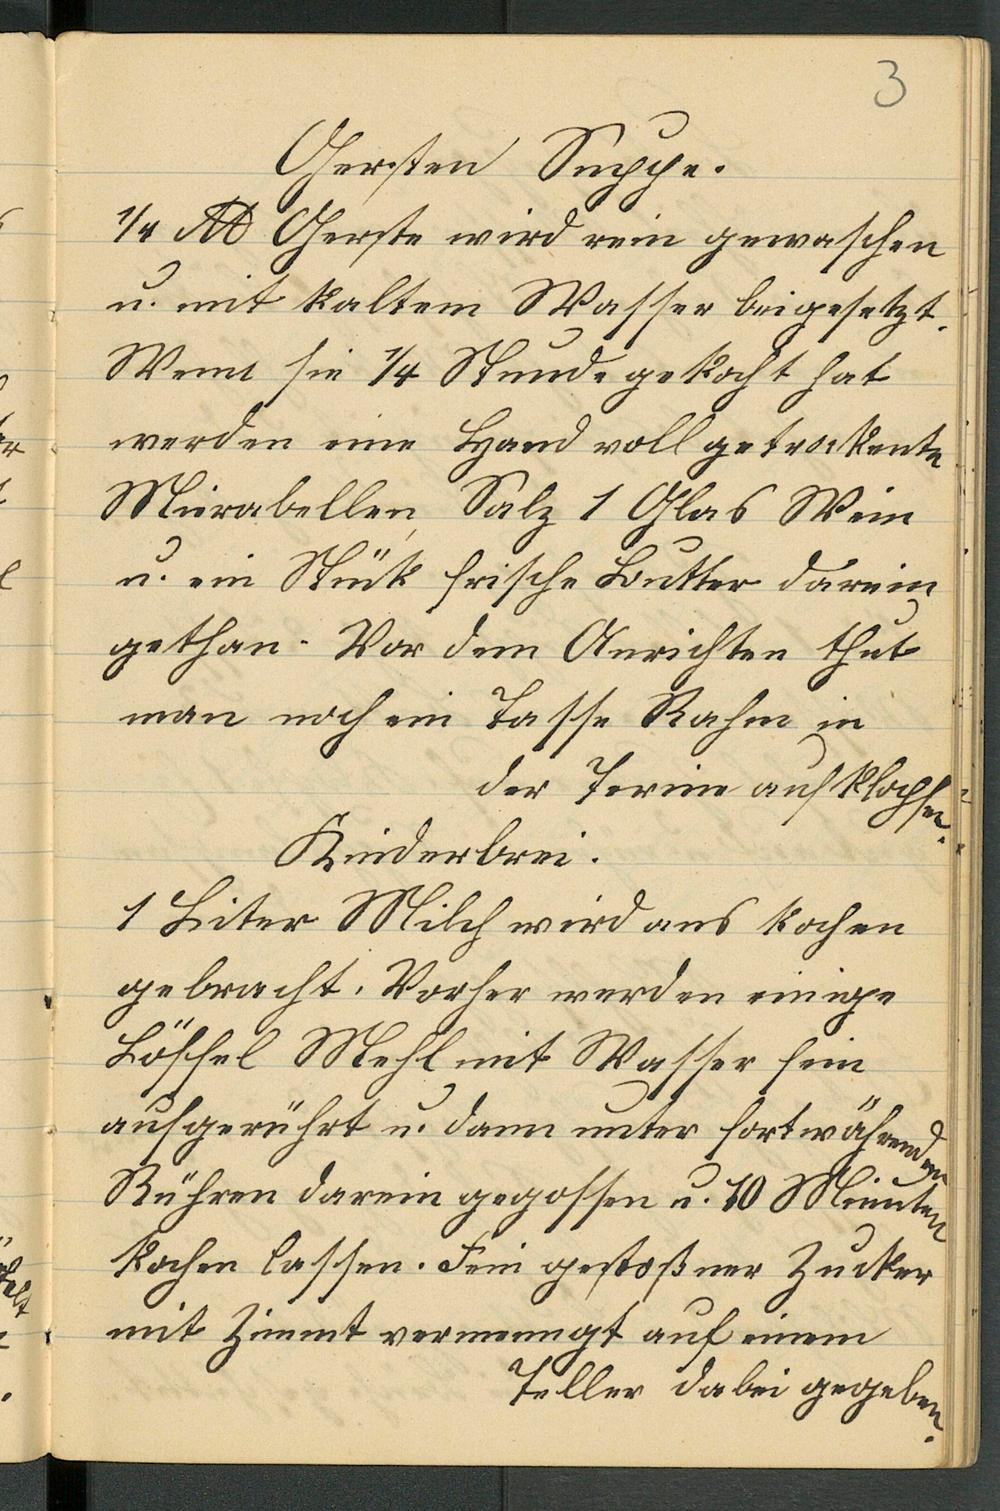 3
Gersten Suppe.
1/4 ℔ Gerste wird rein gewaschen
u. mit kaltem Wasser beigesetzt.
Wenn sie 1/4 Stunde gekocht hat
werden eine Hand voll getrockente
Mirabellen, Salz 1 Glas Wein
u. ein Stück frische Butter darein
gethan. Vor dem Anrichten thut
man noch ein Tasse Rahm in
der Terine
Kinderbrei.
1 Liter Milch wird ans kochen
gebracht. Vorher werden einige
Löffel Mehl mit Wasser fein
aufgerührt u. dann unter fortwährendem
Rühren darein gegossen u. 10 Minuten
kochen lassen. Fein gestoßner Zucker
mit Zimmt vermenngt auf einem
Teller dabei gegeben.